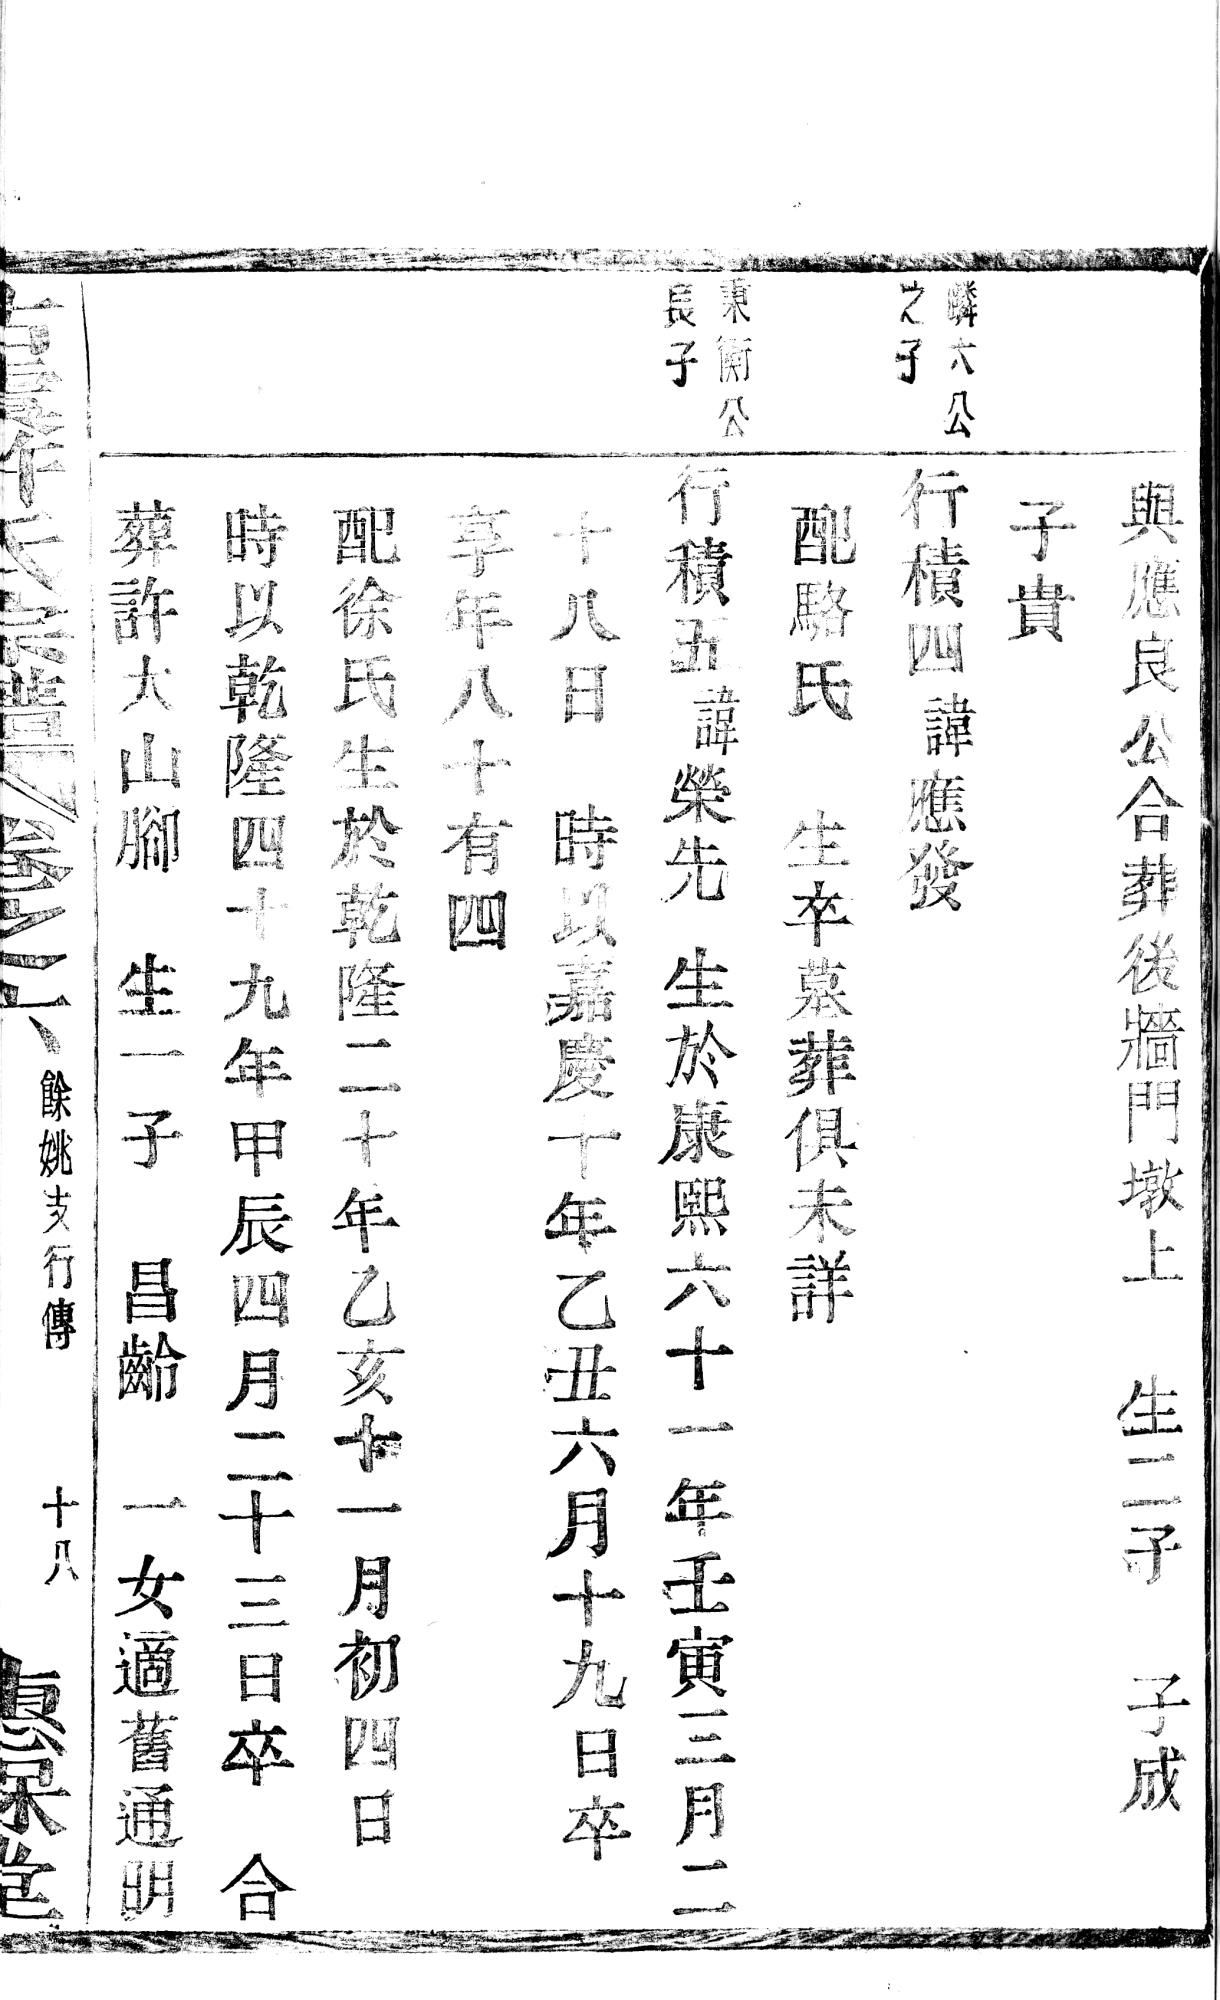 與應良公合葬後牆門墩上　生二子　子成
子貴
麟六公
之子
行積四諱應發
配駱氏　生卒墓葬俱未詳
東衡公
長子
行積五諱榮先　生於康熙六十一年壬寅三月二
十八日　時以嘉慶十年乙丑六月十九日卒
享年八十有四
配徐氏生於乾隆二十年乙亥十一月初四日
時以乾隆四十九年甲辰四月二十三日卒　合
葬許大山腳　生一子　昌齡　一女適舊通明
氏宗譜　卷之八　餘姚支行傳　十八